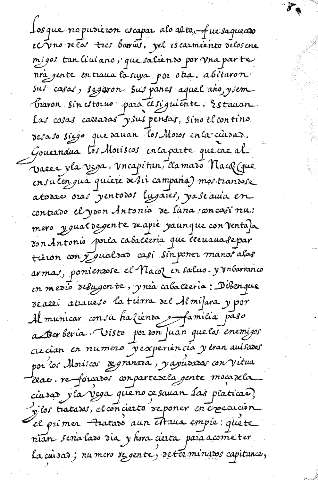 los que no pudieron escapar a lo alto, fue saqueado
el uno de los tres barrios, y el escarmiento de los ene
migos tan liviano, que saliendo por una parte
nra gente entrava la suya por otra. abitaron
sus casas, segaron sus panes aquel año, y sem
braron sin estorvo para el siguiente. Estavan
las cosas calladas y suspensas, sino el contino
desasosiego que davan los Moros en la ciudad.
Governava los Moriscos en la parte que cae al
valle y la vega, un capitan, llamado Nacoz (que
en su lengua quiere dezir campana) mostrandose
a todas oras y en todos lugares, ya se avia en
contrado el y don Antonio de luna con casi nu
mero ygual de gente de a pie, aunque con ventaja
don Antonio por la cavalleria que llevava, se par
tieron con ygualdad casi sin poner manos a las
armas, poniendose el Nacoz en salvo. y un barranco
en medio de su gente, y nra cavalleria: Dizen que
de alli atraveso la tierra del Almijara y por
Almuñecar con su hazienda, y familia paso
a Berberia. Visto por don Juan que los enemigos
crecian en numero y experiencia, y eran avisados
por los Moriscos de granada, y ayudados con vitua
llas, reforçados con parte de la gente moça de la
ciudad y la vega que no cesavan las platicas,
y los tratados, el concierto de poner en execucion
el primer tratado aun estava en pie: que te
nian señalado dia y hora cierta para acometer
la ciudad; numero de gente, determinado capitanes,